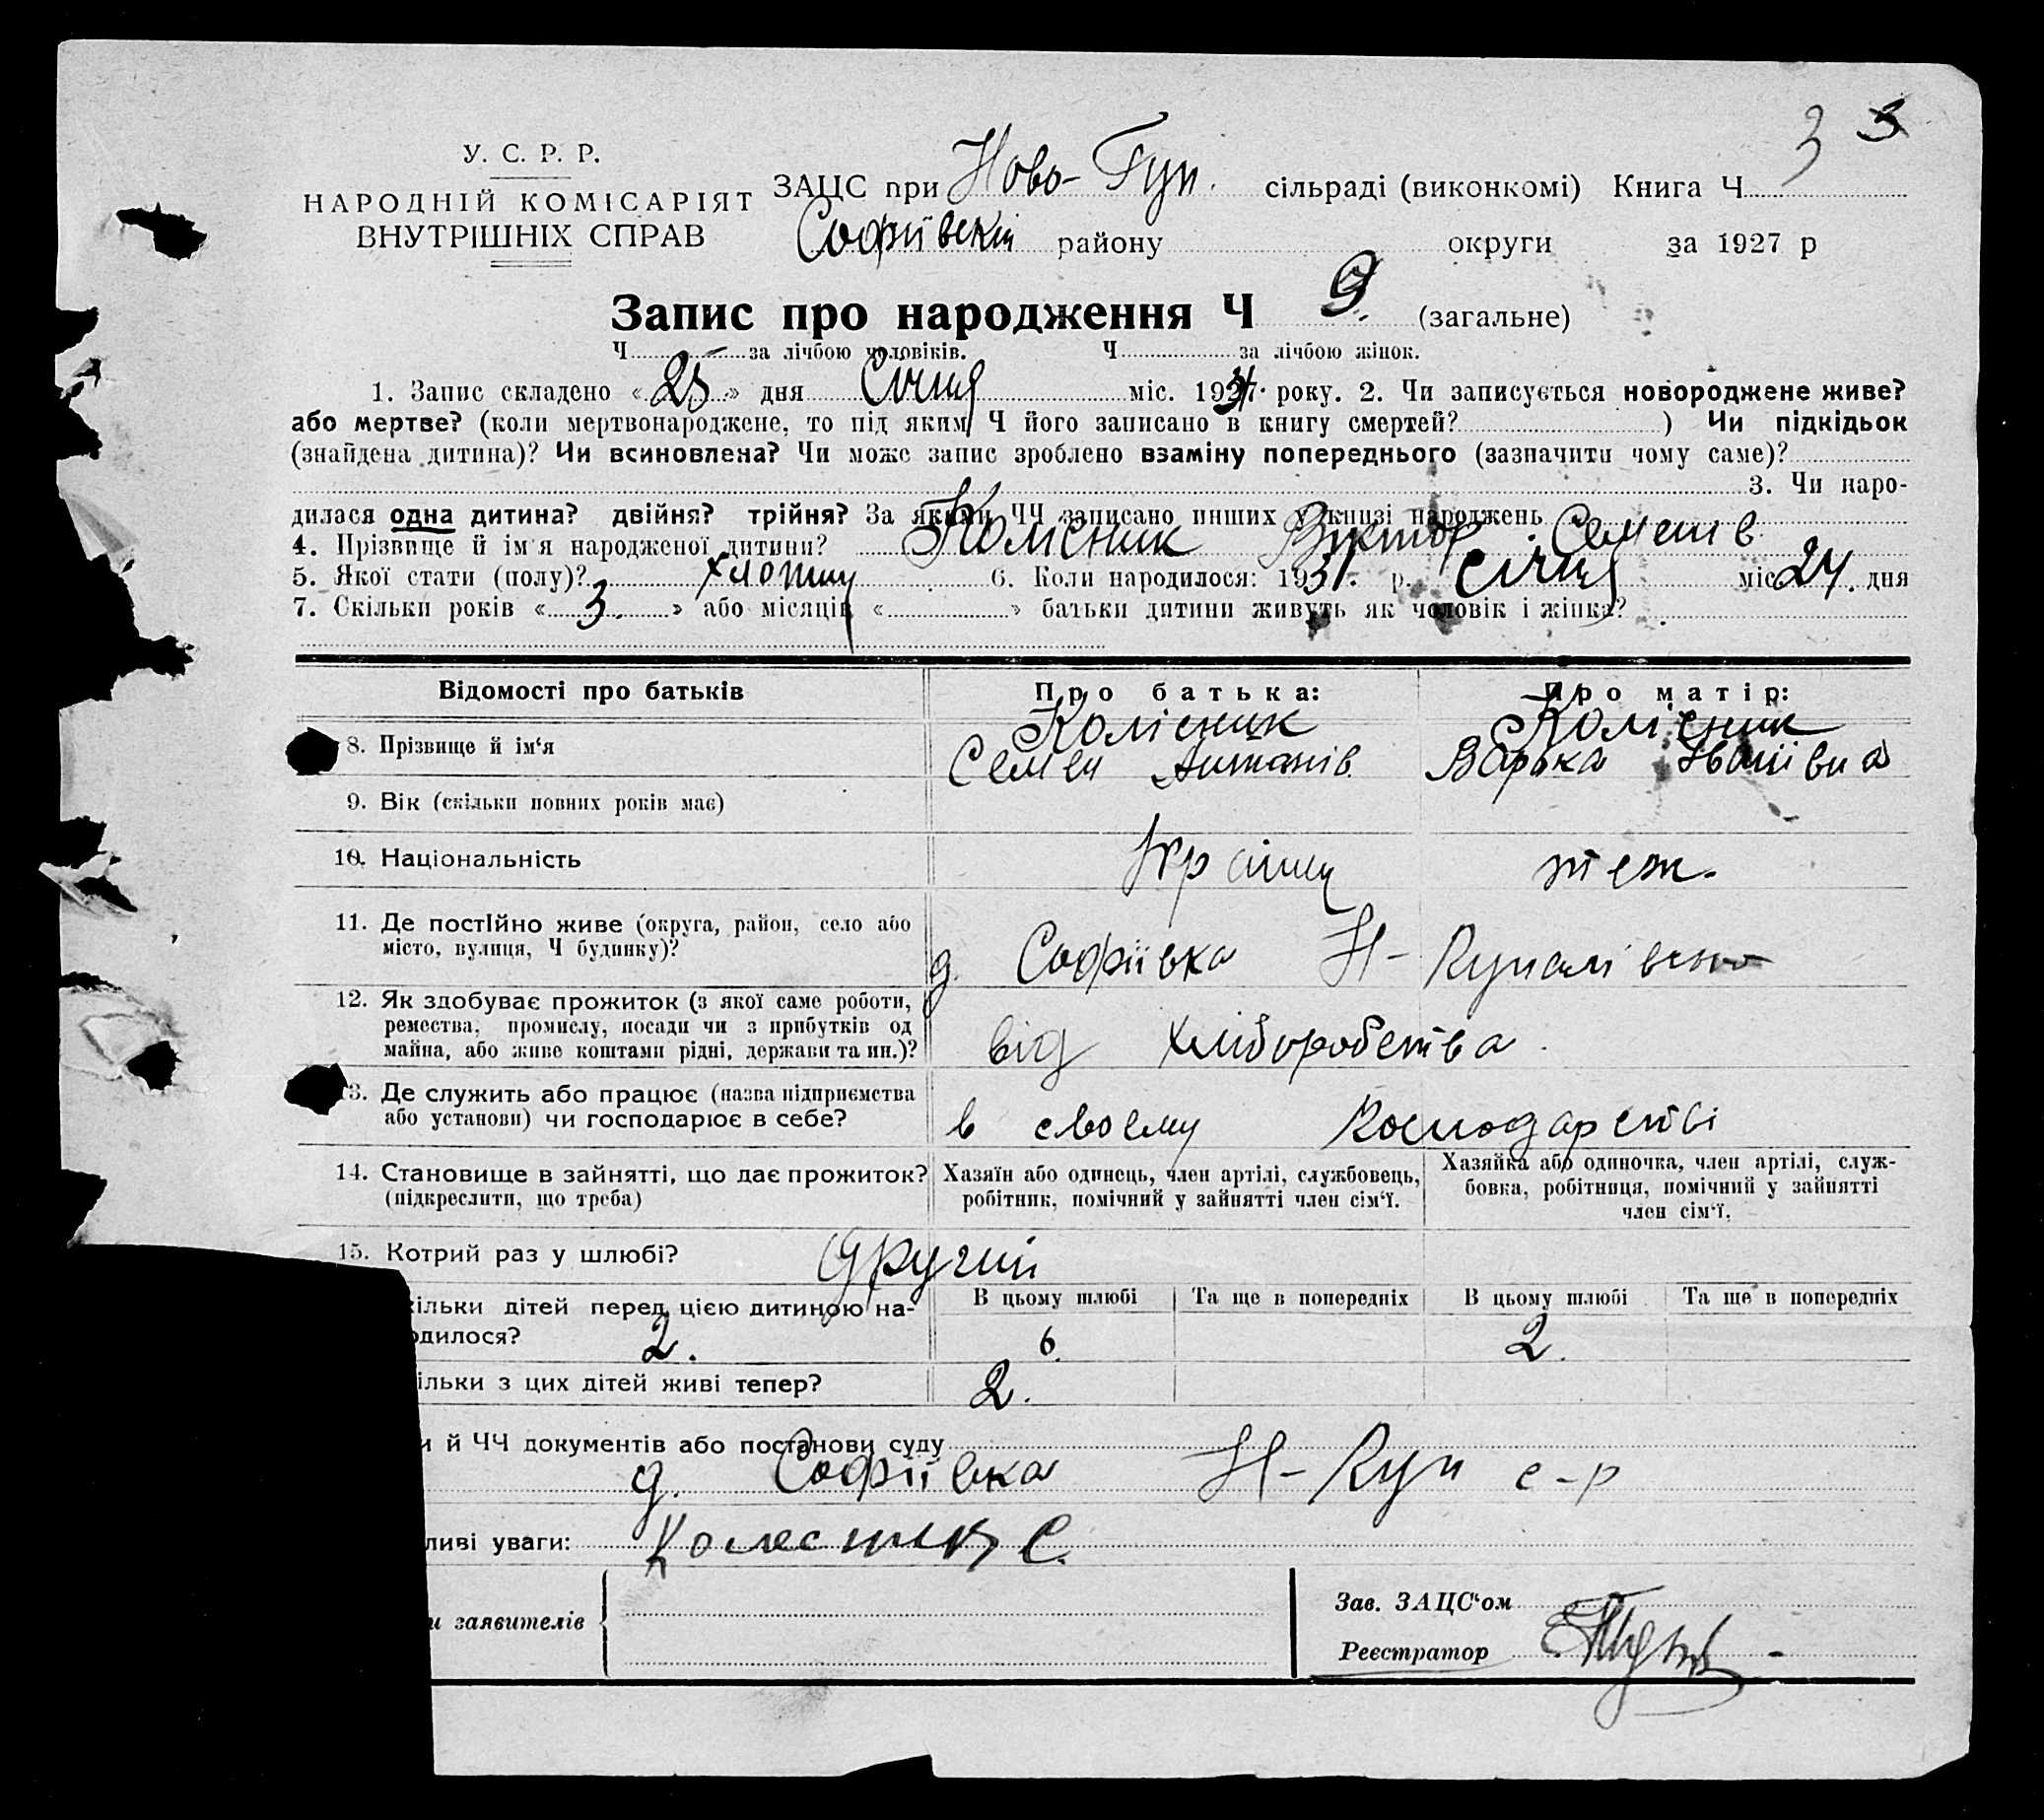 3 3
У. С. Р. Р.
НАРОДНІЙ КОМІСАРІЯТ
ВНУТРІШНІХ СПРАВ
ЗАЦС при Ново- сільраді (виконкомі) Книга Ч
Софіївськ району округи за 1927 р
Запис про народження Ч 9. (загальне)
Ч за лічбою чоловіків. Ч за лічбою жінок.
1. Запис складено « 25 » дня Січня міс. 1931 року. 2. Чи записується новороджене живе?
або мертве? (коли мертвонароджене, то під яким Ч його записано в книгу смертей? ) Чи підкідьок
(знайдена дитина)? Чи всиновлена? Чи може запис зроблено взаміну попереднього (зазначити чому саме)?
3. Чи наро-
дилася одна дитина? двійня? трійня? За якими ЧЧ записано инших у книзі народжень
4. Прізвище й ім'я народженої дитини? Колісник Віктор Семенів
5. Якої стати (полу)? хлопчик 6. Коли народилося: 1931. р. січня міс 24. дня
7. Скільки років « 3. » або місяців « » батьки дитини живуть як чоловік і жінка?
Відомості про батьків
Про батька:
Про матір:
8. Прізвище й ім‘я
Колісник
Семен Антонів
Колісник
Варька Іванівна
9. Вік (скільки повних років має)
10. Національність
Україн
теж.
11. Де постійно живе (округа, район, село або
місто, вулиця, Ч будинку)?
д. Софіївка Н-
12. Як здобуває прожиток (з якої саме роботи,
ремества, промислу, посади чи з прибутків од
майна, або живе коштами рідні, держави та ин.)?
від хліборобства.
13. Де служить або працює (назва підприємства
або установи) чи господарює в себе?
в своєму господарстві
14. Становище в зайнятті, що дає прожиток?
(підкреслити, що треба)
Хазяїн або одинець, член артілі, службовець,
робітник, помічний у зайнятті член сім‘ї.
Хазяйка або одиночка, член артілі, служ-
бовка, робітниця, помічний у зайнятті
член сім‘ї.
15. Котрий раз у шлюбі? другий
кільки дітей перед цією дитиною на-
одилося? 2.
В цьому шлюбі
Та ще в попередніх
В цьому шлюбі
Та ще в попередніх
6.
2.
ільки з цих дітей живі тепер?
2.
и й ЧЧ документів або постанови суду
д. Софіївка Н-Куп с-р
ливі уваги: Колесник С.
и заявителів
Зав. ЗАЦС‘ом
Реєстратор